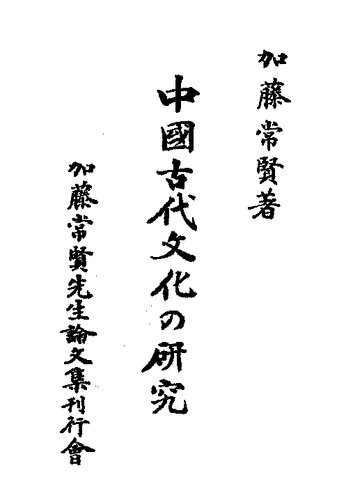 加藤常賢著
中國古代文化の研究
加藤常賢先生論文集刊行會